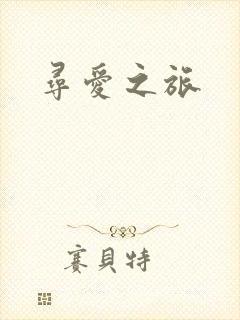 尋愛之旅
賽貝特